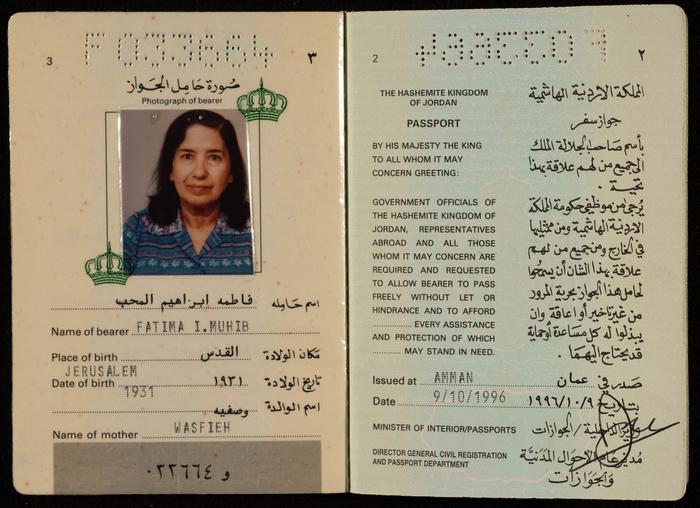 3
F 033664
٣
صورة حامل الجواز
Photograph of bearer
اسم حامله فاطمه ابراهيم المحب
Name of bearer FATIMA I.MUHIB
مكان الولادة القدس
Place of birth
JERUSALEM
تاريخ الولادة ١٩٣١
Date of birth 1931
اسم الوالدة وصفيه
Name of mother WASFIEH
و ٠٣٣٦٦٤
2
F 033664
٢
THE HASHEMITE KINGDOM
OF JORDAN
المملكة الاردنية الهاشمية
PASSPORT
جواز سفر
BY HIS MAJESTY THE KING
TO ALL WHOM IT MAY
CONCERN GREETING:
بأسم صاحب الجلالة الملك
الى جميع من لهم علاقة بهذا
تحية .
GOVERNMENT OFFICIALS OF
THE HASHEMITE KINGDOM OF
JORDAN, REPRESENTATIVES
ABROAD AND ALL THOSE
WHOM IT MAY CONCERN ARE
REQUIRED AND REQUESTED
TO ALLOW BEARER TO PASS
FREELY WITHOUT LET OR
HINDRANCE AND TO AFFORD
............ EVERY ASSISTANCE
AND PROTECTION OF WHICH
............ MAY STAND IN NEED.
يُرجى من موظفي حكومة المملكة
الاردنية الهاشمية ومن ممثليها
في الخارج ومن جميع من لهم
علاقة بهذا الشأن أن يسمحوا
لحامل هذا الجواز بحرية المرور
من غير تأخير أو اعاقة وان
يبذلوا له كل مساعدة أو حماية
قد يحتاج اليهما .
Issued at AMMAN
صدر في عمان
Date 9/10/1996
بتاريخ ١٩٩٦/١٠/٩
MINISTER OF INTERIOR/PASSPORTS
وزير الداخلية / الجوازات
DIRECTOR GENERAL CIVIL REGISTRATION
AND PASSPORT DEPARTMENT
مدير عام الاحوال المدنية
والجوازات